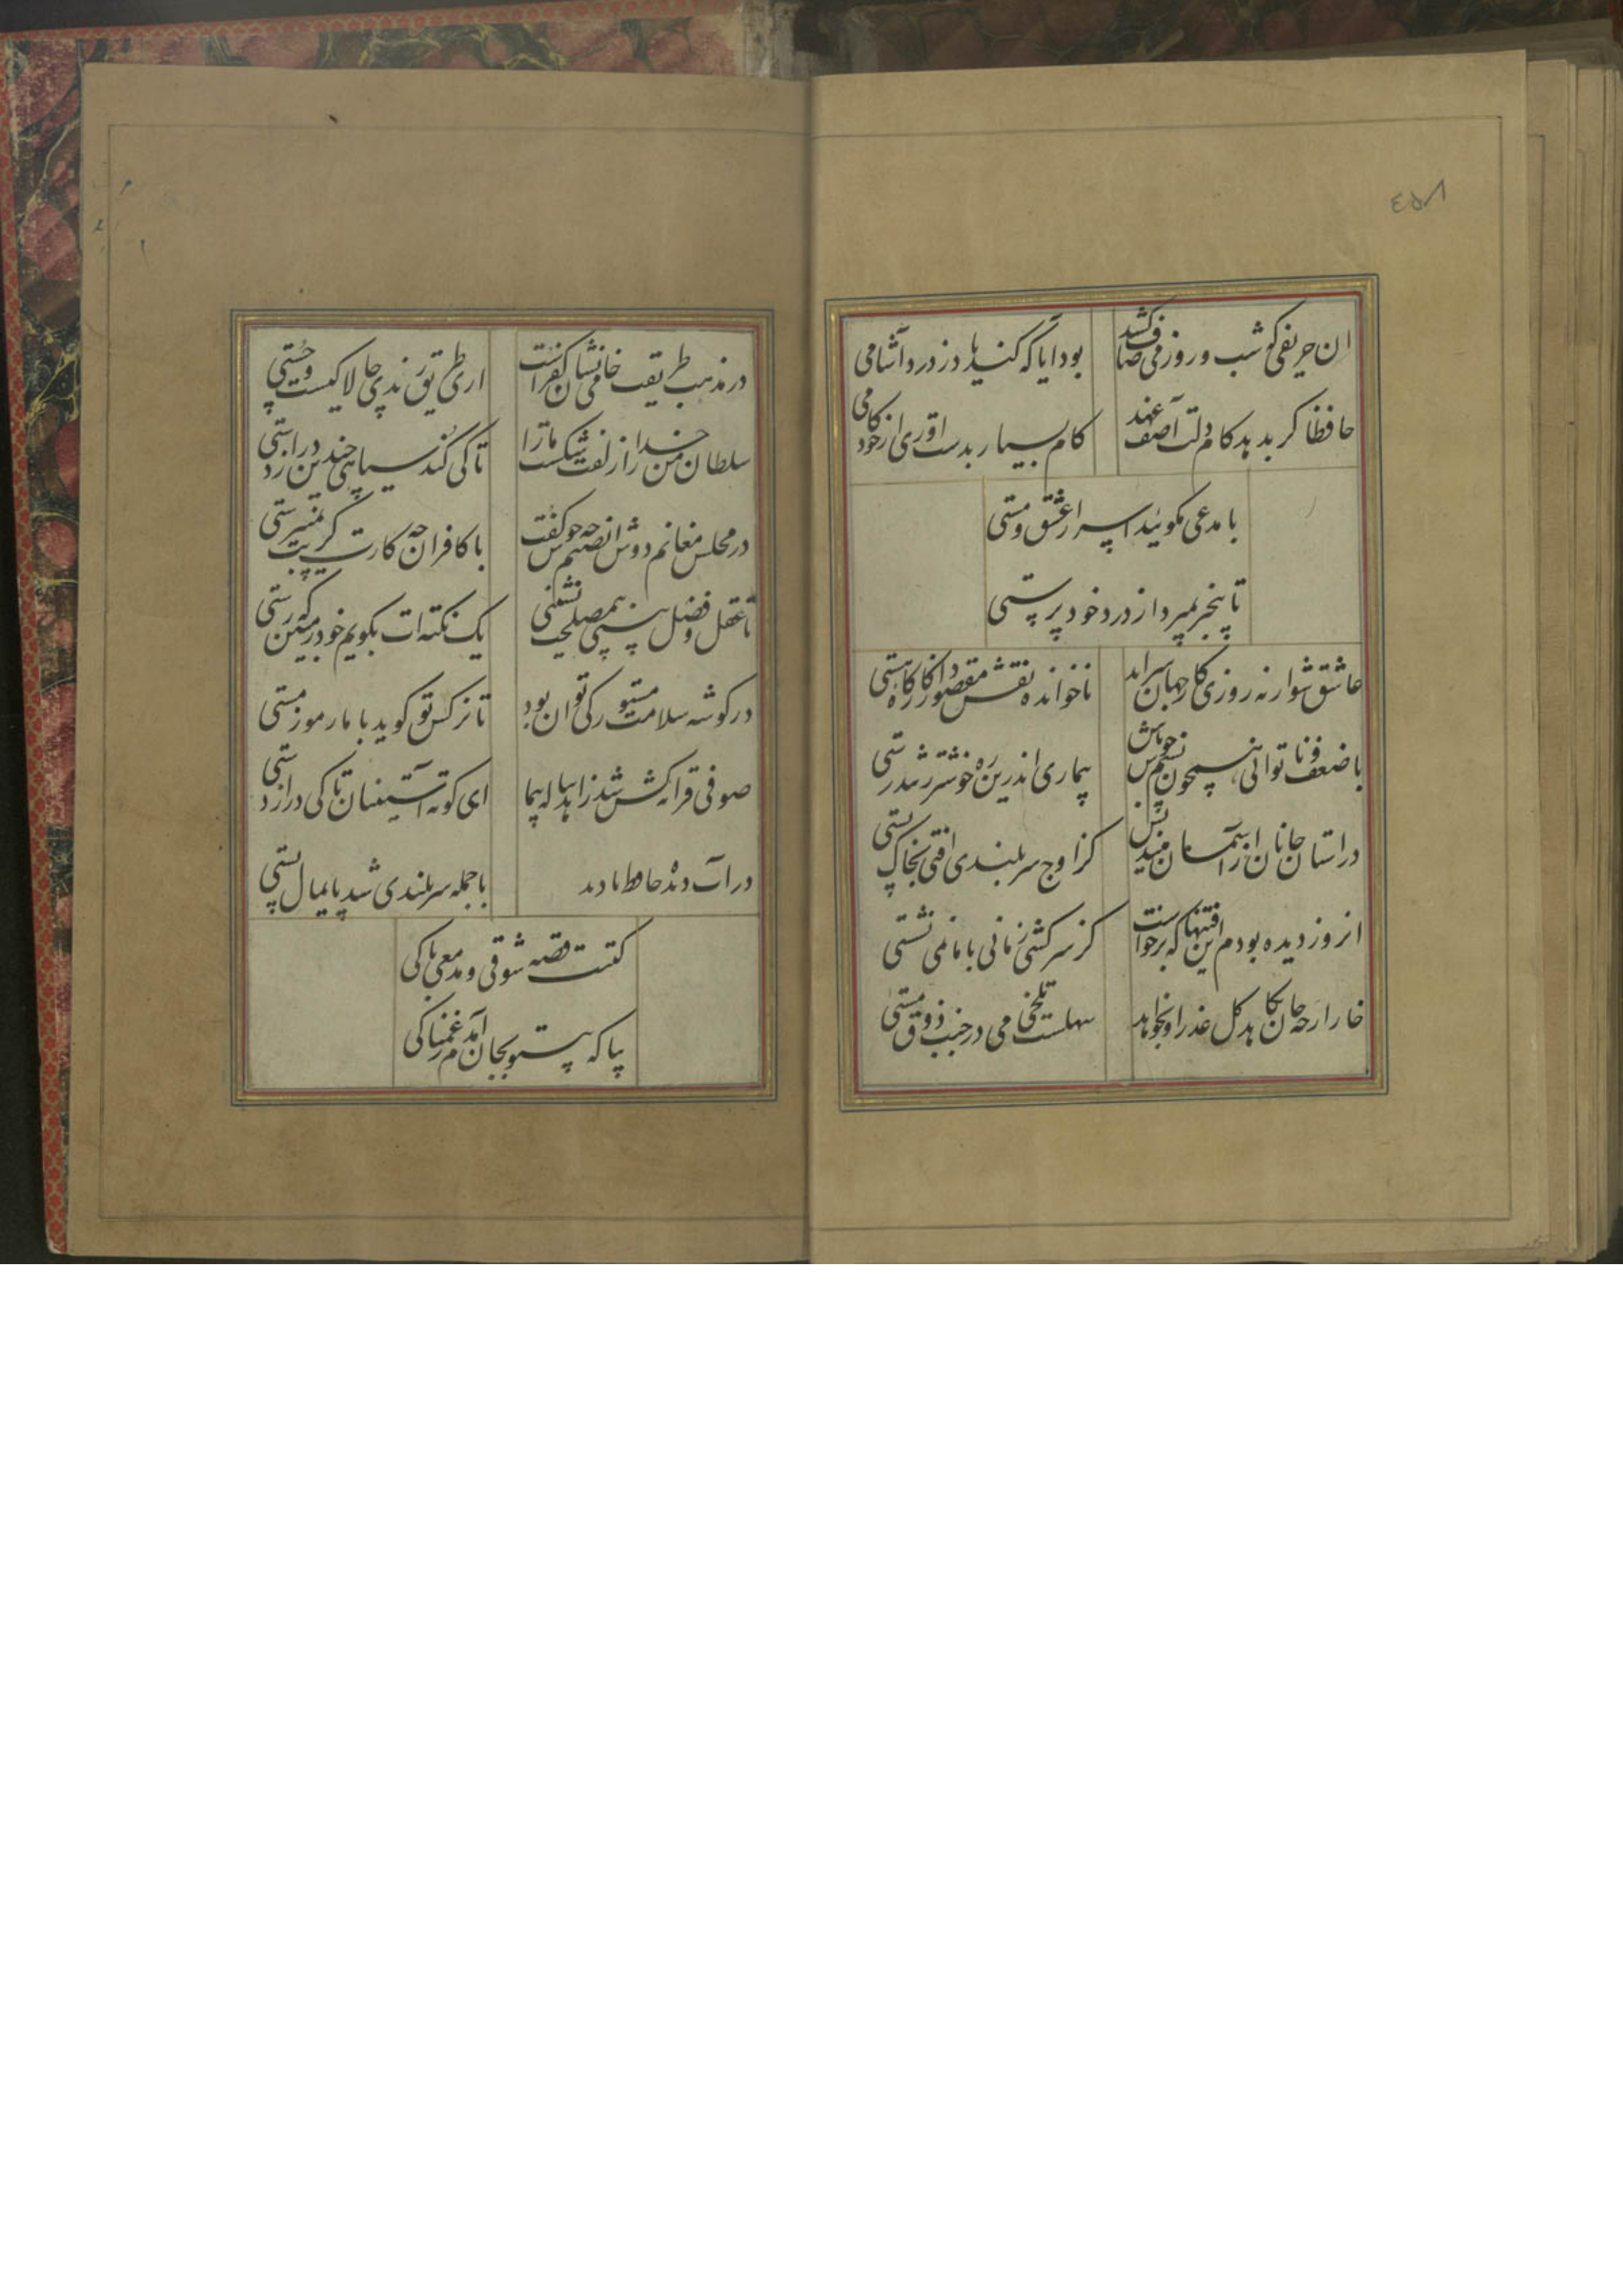 ٤٥٨
ان حریفی کو شب و روز می صاف کشد
بود ایا که کند یاد ز درد آشامی
حافظا کر بدهد کام دلت آصف عهد
کام بسیار بدست اوری از خود کامی
با مدعی مکوئید اسرار عشق و مستی
تا بیخبر بمیرد از درد خود پرستی
عاشق شو ار نه روزی کار جهان سراید
ناخوانده نقش مقصود از کارکاه هستی
با ضعف و ناتوانی همچون نسیم خوش باش
بیماری اندرین ره خوشتر ز تندرستی
در استان جانان از آسمان میندیش
کز اوج سربلندی افتی بخاک پستی
انروز دیده بودم این فتنها که برخواست
کز سرکشی زمانی با ما نمی نشستی
خار ارچه جان بکاهد کل عذر او بخواهد
سهلست تلخی می در جنب ذوق مستی
در مذهب طریقت خامی نشان کفرست
اری طریق رندی چالاکیست و چستی
سلطان من خدا را زلفت شکست ما را
تا کی کند سیاهی چندین دراز دستی
در مجلس مغانم دوش ان صنم چه خوش کفت
با کافران چه کارت کر بت نمیپرستی
تا عقل و فضل بینی بی معرفت نشینی
یک نکته ات بکویم خود را مبین که رستی
در کوشه سلامت مستور کی توان بود
تا نرکس تو کوید با ما رموز مستی
صوفی پیاله پیما زاهد قرابه کش شد
ای کوته آستینان تا کی دراز دستی
در آب دیده حافظ
با جمله سربلندی شد پایمال پستی
کتبت قصه شوقی و مدمعی باکی
بیا که بیتو بجان آمدم ز غمناکی